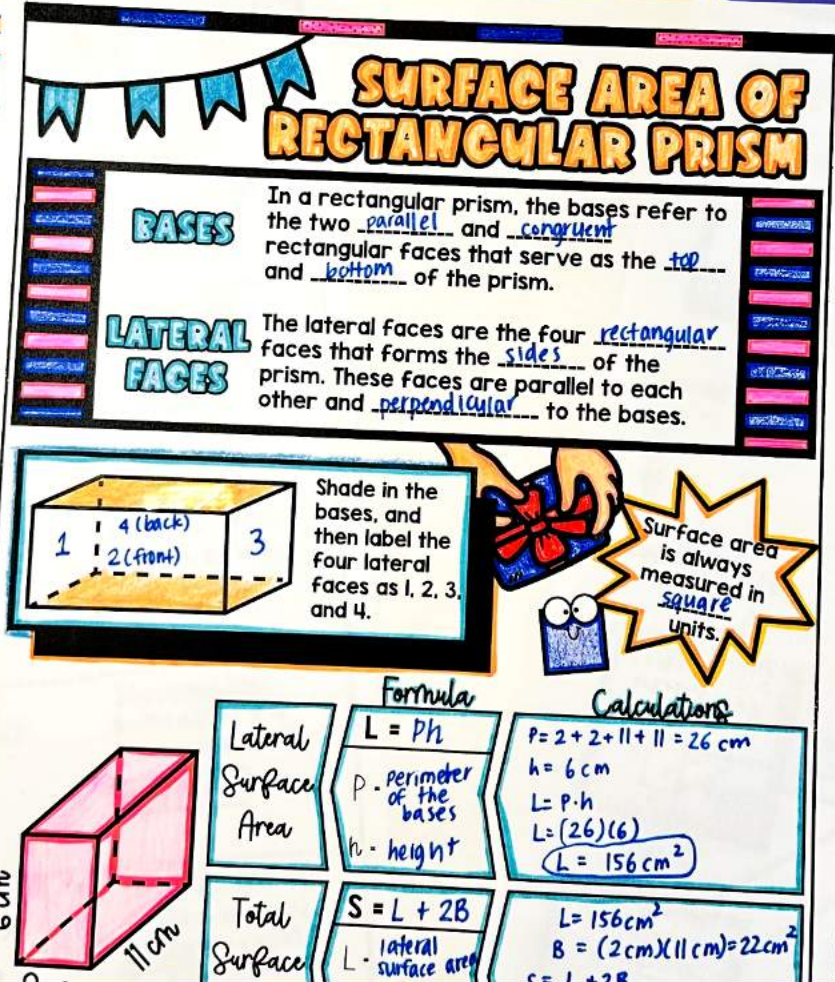 SURFACE AREA OF
RECTANGULAR PRISM
BASES
In a rectangular prism, the bases refer to
the two parallel and congruent
rectangular faces that serve as the top
and bottom of the prism.
LATERAL
FACES
The lateral faces are the four rectangular
faces that forms the sides of the
prism. These faces are parallel to each
other and perpendicular to the bases.
1
4 (back)
2 (front)
3
Shade in the
bases, and
then label the
four lateral
faces as 1, 2, 3,
and 4.
Surface area
is always
measured in
square
units.
Formula
Calculations
Lateral
Surface
Area
L = Ph
P - perimeter
of the
bases
h - height
P = 2 + 2 + 11 + 11 = 26 cm
h = 6 cm
L = P·h
L = (26)(6)
L = 156 cm²
6 cm
11 cm
Total
Surface
S = L + 2B
L - lateral
surface area
L = 156 cm²
B = (2 cm)(11 cm) = 22 cm²
S = L + 2B